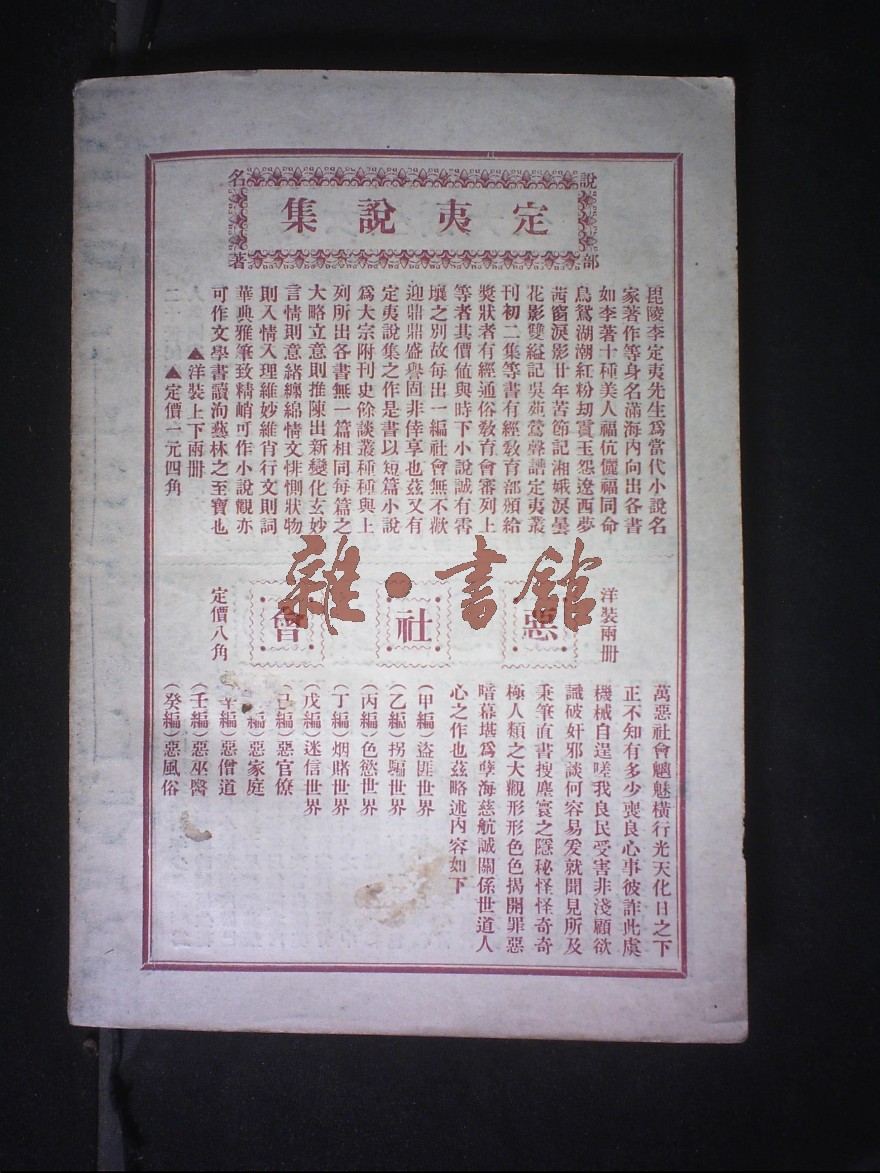 說部名著
定夷說集
毘陵李定夷先生爲當代小說名
家著作等身名滿海內向出各書
如李著十種美人福伉儷福同命
鳥鴛湖潮紅粉刼賈玉怨遼西夢
茜窗淚影廿年苦節記湘娥淚曇
花影雙縊記吳苑鶯聲譜定夷叢
刊初二集等書有經教育部頒給
獎狀者有經通俗教育會審列上
等者其價値與時下小說誠有霄
壤之別故每出一編社會無不歡
迎鼎鼎盛譽固非倖享也茲又有
定夷說集之作是書以短篇小說
爲大宗附刊史餘談叢種種與上
列所出各書無一篇相同每篇之
大略立意則推陳出新變化玄妙
言情則意緒纏綿情文悱惻狀物
則入情入理維妙維肖行文則詞
華典雅筆致精峭可作小說觀亦
可作文學書讀洵藝林之至寶也
▲洋裝上下兩冊
▲定價一元四角
洋裝兩冊
惡社會
定價八角
萬惡社會魑魅橫行光天化日之下
正不知有多少喪良心事彼詐此虞
機械自逞嗟我良民受害非淺顧欲
識破奸邪談何容易爰就聞見所及
秉筆直書搜塵寰之隱秘怪怪奇奇
極人類之大觀形形色色揭開罪惡
暗幕堪爲孽海慈航誠關係世道人
心之作也茲略述內容如下
(甲編)盜匪世界
(乙編)拐騙世界
(丙編)色慾世界
(丁編)烟賭世界
(戊編)迷信世界
(己編)惡官僚
編)惡家庭
辛編)惡僧道
(壬編)惡巫醫
(癸編)惡風俗
雜·書館